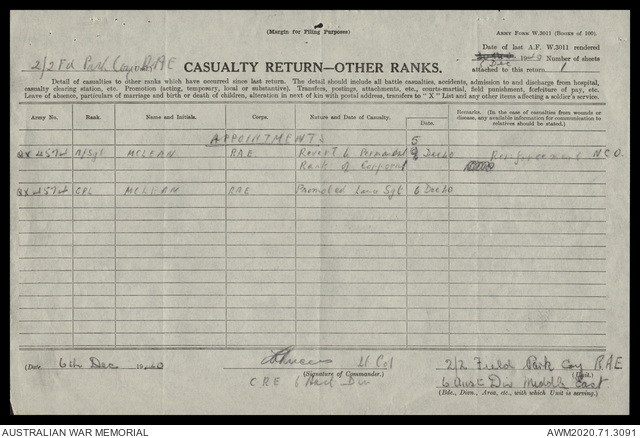 (Margin for Filing Purposes)
ARMY FORM W.3011 (BOOKS OF 100).
Date of last A.F. W.3011 rendered
1 Dec 1940 Number of sheets
attached to this return 1
2/2 Fd Park Coy RAE
CASUALTY RETURN—OTHER RANKS.
Detail of casualties to other ranks which have occurred since last return. The detail should include all battle casualties, accidents, admission to and discharge from hospital,
casualty clearing station, etc. Promotion (acting, temporary, local or substantive). Transfers, postings, attachments, etc., courts-martial, field punishment, forfeiture of pay, etc.
Leave of absence, particulars of marriage and birth or death of children, alteration in next of kin with postal address, transfers to "X" List and any other items affecting a soldier's service.
Army No. Rank. Name and Initials. Corps. Nature and Date of Casualty. Date. Remarks. (In the case of casualties from wounds or
disease, any available information for communication to
relatives should be stated.)
APPOINTMENTS
5
QX4574 A/Sgt McLEAN RAE Revert to Permanent Dec 40 Reinforcement N.C.O.
Rank of Corporal
QX4574 CPL McLEAN RAE Promoted Lance Sgt 6 Dec 40
(Date 6th Dec 1940 Lt Col 2/2 Field Park Coy RAE
(Signature of Commander.) (Unit.)
CRE 6 Aust Div 6 Aust Div Middle East
(Bde., Divn., Area, etc., with which Unit is serving.)
AUSTRALIAN WAR MEMORIAL
AWM2020.71.3091